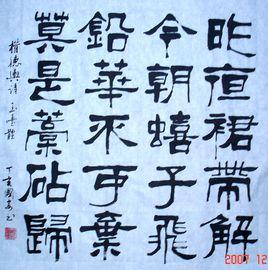 昨夜裙帶解
今朝蟢子飛
鉛華不可棄
莫是藁砧歸
權德輿诗 玉臺體
丁亥
2007 12